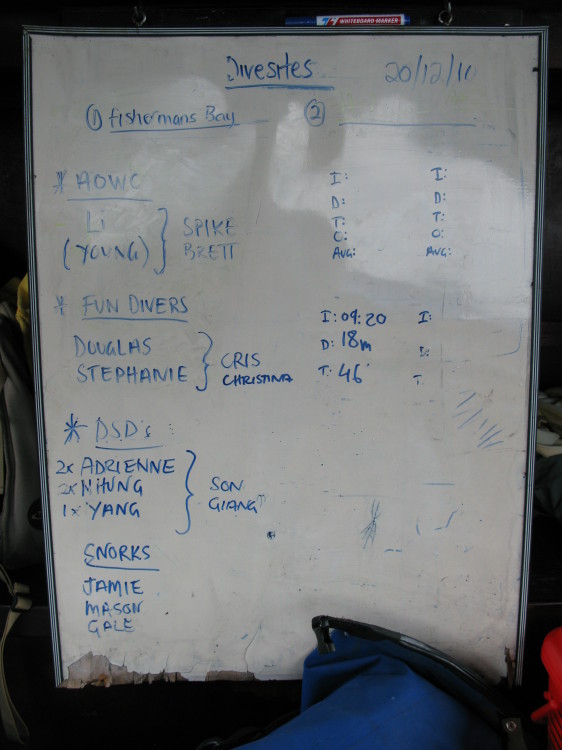 WHITEBOARD MARKER
Divesites 20/12/10
① fishermans Bay ②
* AOWC
Li
(YOUNG) } SPIKE
BRETT
I: I:
D: D:
T: T:
O: O:
AVG: AVG:
* FUN DIVERS
DOUGLAS
STEPHANIE } CRIS
CHRISTINA
I: 09:20 I:
D: 18m D:
T: 46' T:
* DSD's
2x ADRIENNE
2x NHUNG
1x YANG } SON
GIANG
SNORKS
JAMIE
MASON
GALE